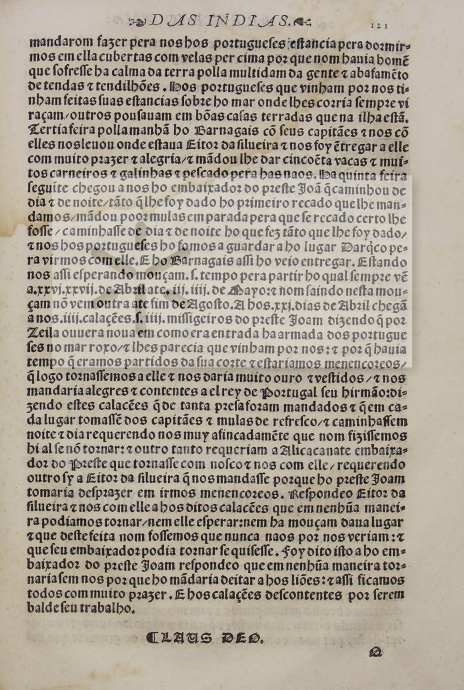 DAS INDIAS.
121
mandarom fazer pera nos hos portugueses estancia pera dormir-
mos em ella cubertas com velas per cima por que nom hauia homẽ
que sofresse ha calma da terra polla multidam da gente ⁊ abafamẽto
de tendas ⁊ tendilhões. Hos portugueses que vinham por nos ti-
nham feitas suas estancias sobre ho mar onde lhes corria sempre vi
raçam/outros pousauam em bõas casas terradas que na ilha estã.
Tertia feira polla manhã ho Barnagais cõ seus capitães ⁊ nos cõ
elles nos leuou onde estaua Eitor da silueira ⁊ nos foy ẽtregar a elle
com muito prazer ⁊ alegria/⁊ mãdou lhe dar cincoẽta vacas ⁊ mui-
tos carneiros ⁊ galinhas ⁊ pescado pera has naos. Ha quinta feira
seguĩte chegou a nos ho embaixador do preste Joã q̃ caminhou de
dia ⁊ de noite/tãto q̃ lhe foy dado ho primeiro recado que lhe man-
damos/mãdou poor mulas em parada pera que se recado certo lhe
fosse/caminhasse de dia ⁊ de noite ho que fez tãto que lhe foy dado/
⁊ nos hos portugueses ho fomos a guardar a ho lugar Darq̃co pe-
ra virmos com elle. E ho Barnagais assi ho veio entregar. Estando
nos assi esperando mouçam.s. tempo pera partir ho qual sempre vẽ
a.xxvj.xxvij. de Abril ate.iij.iiij. de Mayo: ⁊ nom saindo nesta mou-
çam nõ vem outra ate fim de Agosto. A hos.xxj. dias de Abril chegã
a nos.iiij. calaçẽes.s.iiij. missigeiros do preste Joam dizendo q̃ por
Zeila ouuera noua em como era entrada ha armada dos portugue
ses no mar roxo/⁊ lhes parecia que vinham por nos: ⁊ por q̃ hauia
tempo q̃ eramos partidos da sua corte ⁊ estariamos menencoreos/
q̃ logo tornassemos a elle ⁊ nos daria muito ouro ⁊ vestidos/⁊ nos
mandaria alegres ⁊ contentes a el rey de Portugal seu hirmão: di-
zendo estes calacẽes q̃ de tanta presa foram mandados ⁊ q̃ em ca-
da lugar tomassẽ dos capitães ⁊ mulas de refresco/⁊ caminhassem
noite ⁊ dia requerendo nos muy afincadamẽte que nom fizissemos
hi al se nõ tornar: ⁊ outro tanto requeriam a Alicacanate embaixa-
dor do Preste que tornasse com nosco ⁊ nos com elle/requerendo
outro sy a Eitor da silueira q̃ nos mandasse porque ho preste Joam
tomaria desprazer em irmos menencoreos. Respondeo Eitor da
silueira ⁊ nos com elle a hos ditos calacẽes que em nenhũa manei-
ra podiamos tornar/nem elle esperar: nem ha mouçam daua lugar
⁊ que desta feita nom fossemos que nunca naos por nos veriam: ⁊
que seu embaixador podia tornar se quisesse. Foy dito isto a ho em-
baixador do preste Joam respondeo que em nenhũa maneira tor-
naria sem nos por que ho mãdaria deitar a hos liões: ⁊ assi ficamos
todos com muito prazer. E hos calaçẽes descontentes por serem
balde seu trabalho.
CLAUS DEO.